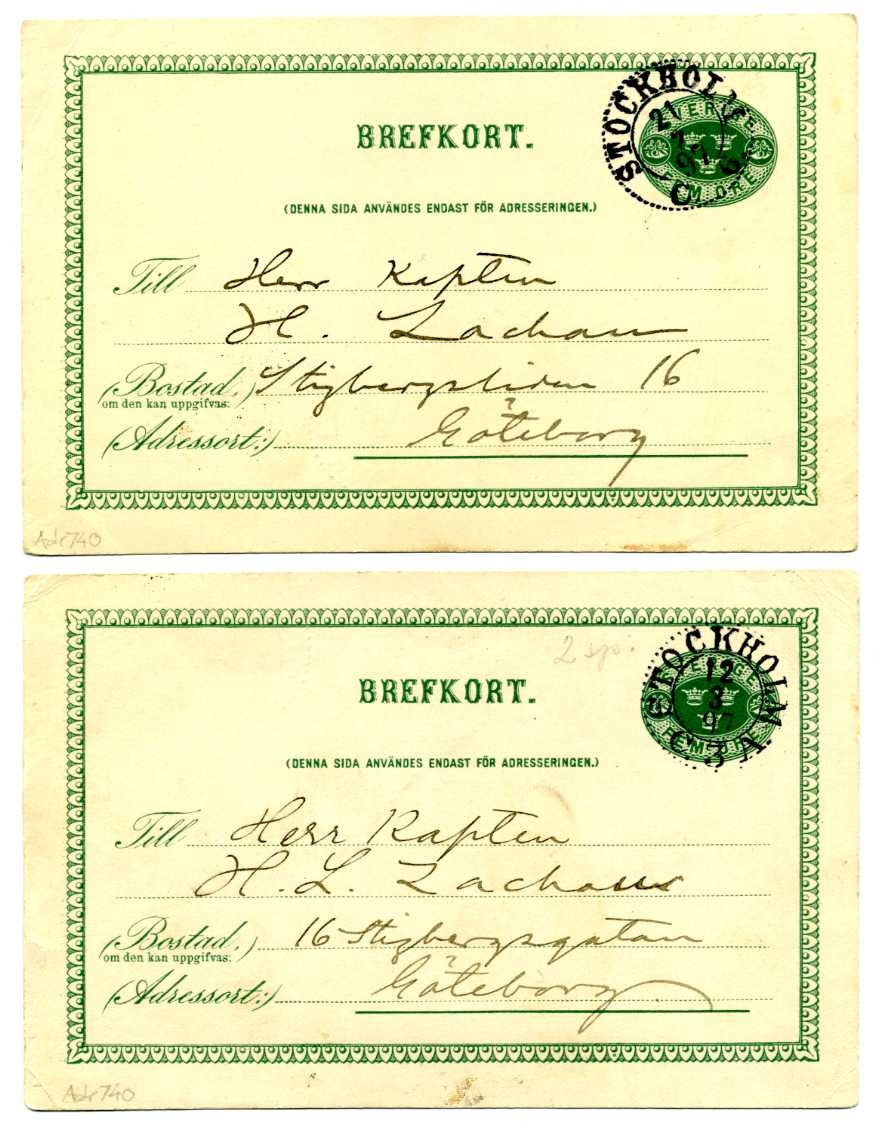 BREFKORT.
STOCKHOLM
21
7
97
SVERIGE
FEM ÖRE
(DENNA SIDA ANVÄNDES ENDAST FÖR ADRESSERINGEN.)
Till Herr Kapten
H. Zachau
(Bostad,) Stigbergsliden 16
om den kan uppgifvas:
(Adressort:) Göteborg
Adr740
2 sps.
BREFKORT.
STOCKHOLM
12
3
97
C. 3 A.
SVERIGE
FEM ÖRE
(DENNA SIDA ANVÄNDES ENDAST FÖR ADRESSERINGEN.)
Till Herr Kapten
H. L. Zachau
(Bostad,) 16 Stigbergsgatan
om den kan uppgifvas:
(Adressort:) Göteborg
Adr740